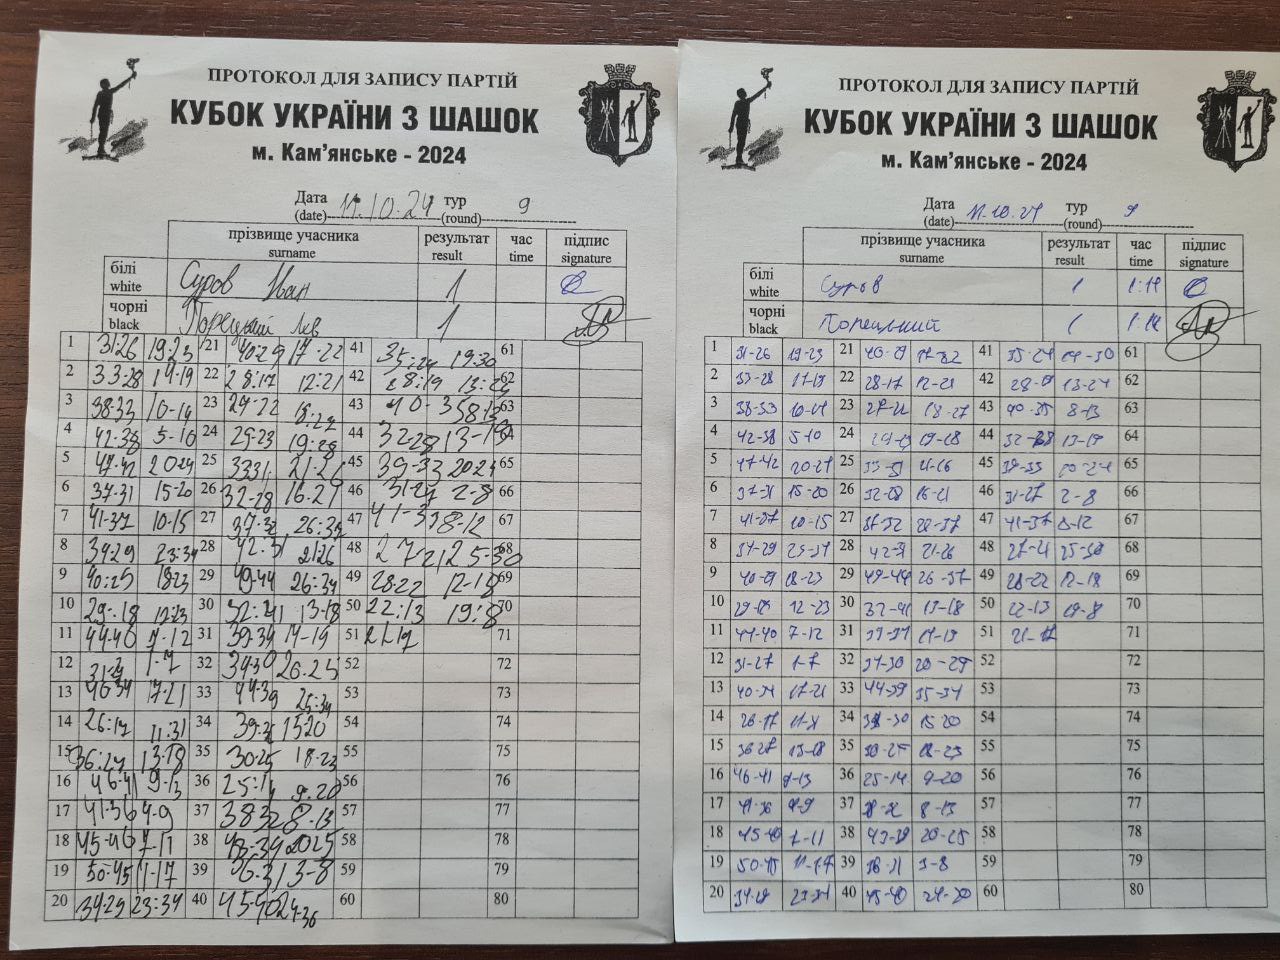 ПРОТОКОЛ ДЛЯ ЗАПИСУ ПАРТІЙ
КУБОК УКРАЇНИ З ШАШОК
м. Кам'янське - 2024
Дата (date) 11.10.24 тур (round) 9
прізвище учасника surname результат result час time підпис signature
білі white Суров Іван 1
чорні black Порецький Лев 1
1 31-26 19-23 21 40-29 17-22 41 35-24 19-30 61
2 33-28 14-19 22 28:17 12:21 42 28:19 13:24 62
3 38-33 10-14 23 27-22 18:27 43 40-35 8-13 63
4 42-38 5-10 24 29-23 19:28 44 32-28 13-19 64
5 47-42 20-24 25 33:31 21-26 45 39-33 20-24 65
6 37-31 15-20 26 32-28 16-21 46 31-27 2-8 66
7 41-37 10-15 27 37-32 26:37 47 41-37 8-12 67
8 34-29 23:34 28 42:31 21-26 48 27-21 25-30 68
9 40:29 18-23 29 49-44 26:37 49 28-22 12-18 69
10 29:18 12:23 30 32:41 13-18 50 22:13 19:8 70
11 44-40 7-12 31 39-34 14-19 51 21-17 71
12 31-27 1-7 32 34-30 52 72
13 40-34 17-21 33 44-39 25:34 53 73
14 26:17 11:31 34 15-20 54 74
15 36:27 13-18 35 30-25 18-23 55 75
16 46-41 9-13 36 25:14 9:20 56 76
17 41-36 4-9 37 38-32 8-13 57 77
18 45-40 7-11 38 43-39 20-25 58 78
19 50-45 11-17 39 36-31 3-8 59 79
20 34-29 23:34 40 45-40 60 80
ПРОТОКОЛ ДЛЯ ЗАПИСУ ПАРТІЙ
КУБОК УКРАЇНИ З ШАШОК
м. Кам'янське - 2024
Дата (date) 11.10.24 тур (round) 9
прізвище учасника surname результат result час time підпис signature
білі white Суров 1
чорні black Порецький 1
1 31-26 19-23 21 40-29 17-22 41 35-24 19-30 61
2 33-28 14-19 22 28-17 12-21 42 28-19 13-24 62
3 38-33 10-14 23 27-22 18-27 43 40-35 8-13 63
4 42-38 5-10 24 29-23 19-28 44 32-28 13-19 64
5 47-42 20-24 25 33-31 21-26 45 39-33 20-24 65
6 37-31 15-20 26 32-28 16-21 46 31-27 2-8 66
7 41-37 10-15 27 37-32 26-37 47 41-37 8-12 67
8 34-29 23-34 28 42-31 21-26 48 27-21 25-30 68
9 40-29 18-23 29 49-44 26-37 49 28-22 12-18 69
10 29-18 12-23 30 32-41 13-18 50 22-13 19-8 70
11 44-40 7-12 31 39-34 14-19 51 21-17 71
12 31-27 1-7 32 34-30 52 72
13 40-34 17-21 33 44-39 53 73
14 26-17 11-31 34 15-20 54 74
15 36-27 13-18 35 30-25 18-23 55 75
16 46-41 9-13 36 25-14 9-20 56 76
17 41-36 4-9 37 38-32 8-13 57 77
18 45-40 7-11 38 43-39 20-25 58 78
19 50-45 11-17 39 36-31 3-8 59 79
20 34-29 23-34 40 45-40 60 80